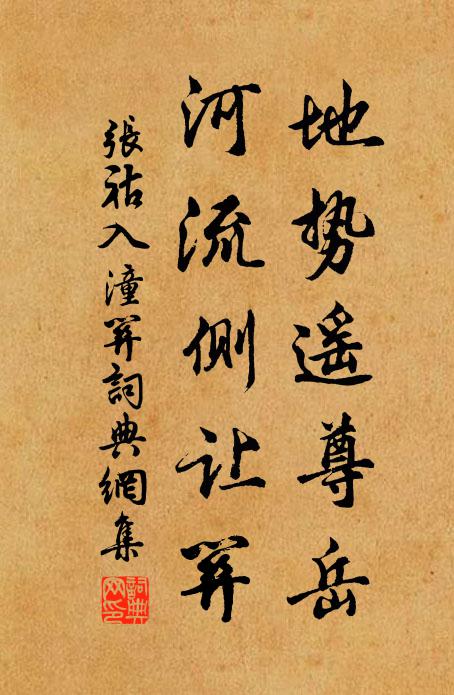 地势遥尊岳
河流侧让关
張祜入潼关詞典網集
詞典
网印